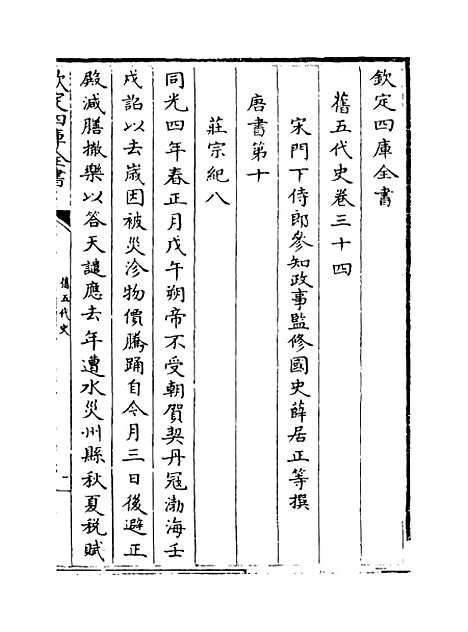 欽定四庫全書
舊五代史卷三十四
宋門下侍郎參知政事監修國史薛居正等撰
唐書第十
莊宗紀八
同光四年春正月戊午朔帝不受朝賀契丹冦渤海壬
戌詔以去歲因被災沴物價騰踊自今月三日後避正
殿減膳撤樂以答天譴應去年遭水災州縣秋夏稅賦
欽定四庫全書
舊五代史
一